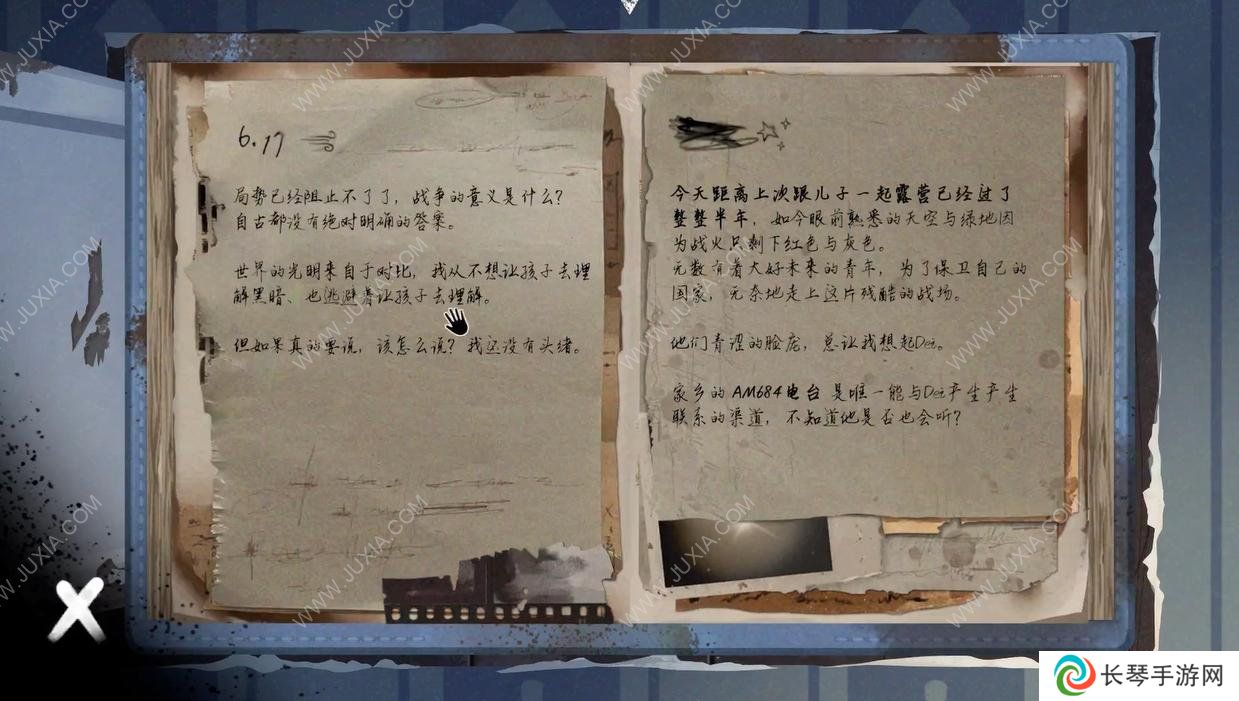 6.17
局势已经阻止不了了，战争的意义是什么？
自古都没有绝对明确的答案。
世界的光明来自于对比，我从不想让孩子去理
解黑暗、也逃避着让孩子去理解。
但如果真的要说，该怎么说？我还没有头绪。
今天距离上次跟儿子一起露营已经过了
整整半年，如今眼前熟悉的天空与绿地因
为战火只剩下红色与灰色。
无数有着大好未来的青年，为了保卫自己的
国家，无奈地走上这片残酷的战场。
他们青涩的脸庞，总让我想起Dei。
家乡的 AM684电台 是唯一能与Dei产生产生
联系的渠道，不知道他是否也会听？
WWW.JUXIA.COM
长琴手游网